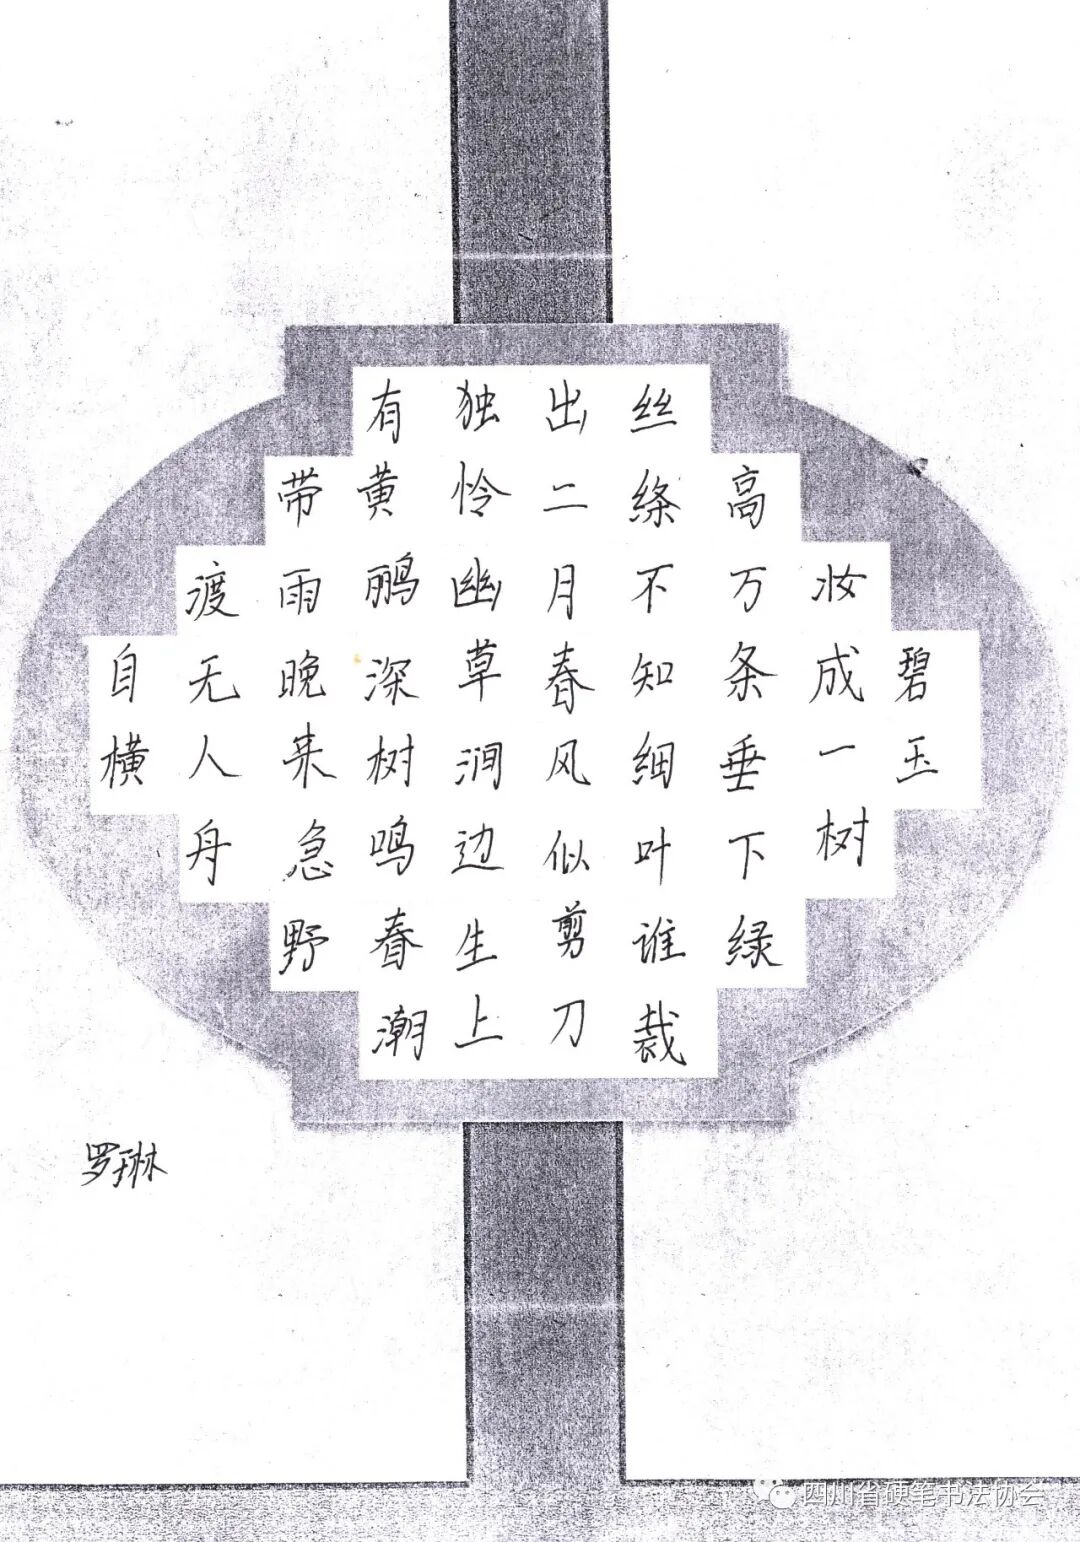 碧玉
妆成一树
高万条垂下绿
丝绦不知细叶谁裁
出二月春风似剪刀
独怜幽草涧边生上
有黄鹂深树鸣春潮
带雨晚来急野
渡无人舟
自横
罗琳
四川省硬笔书法协会